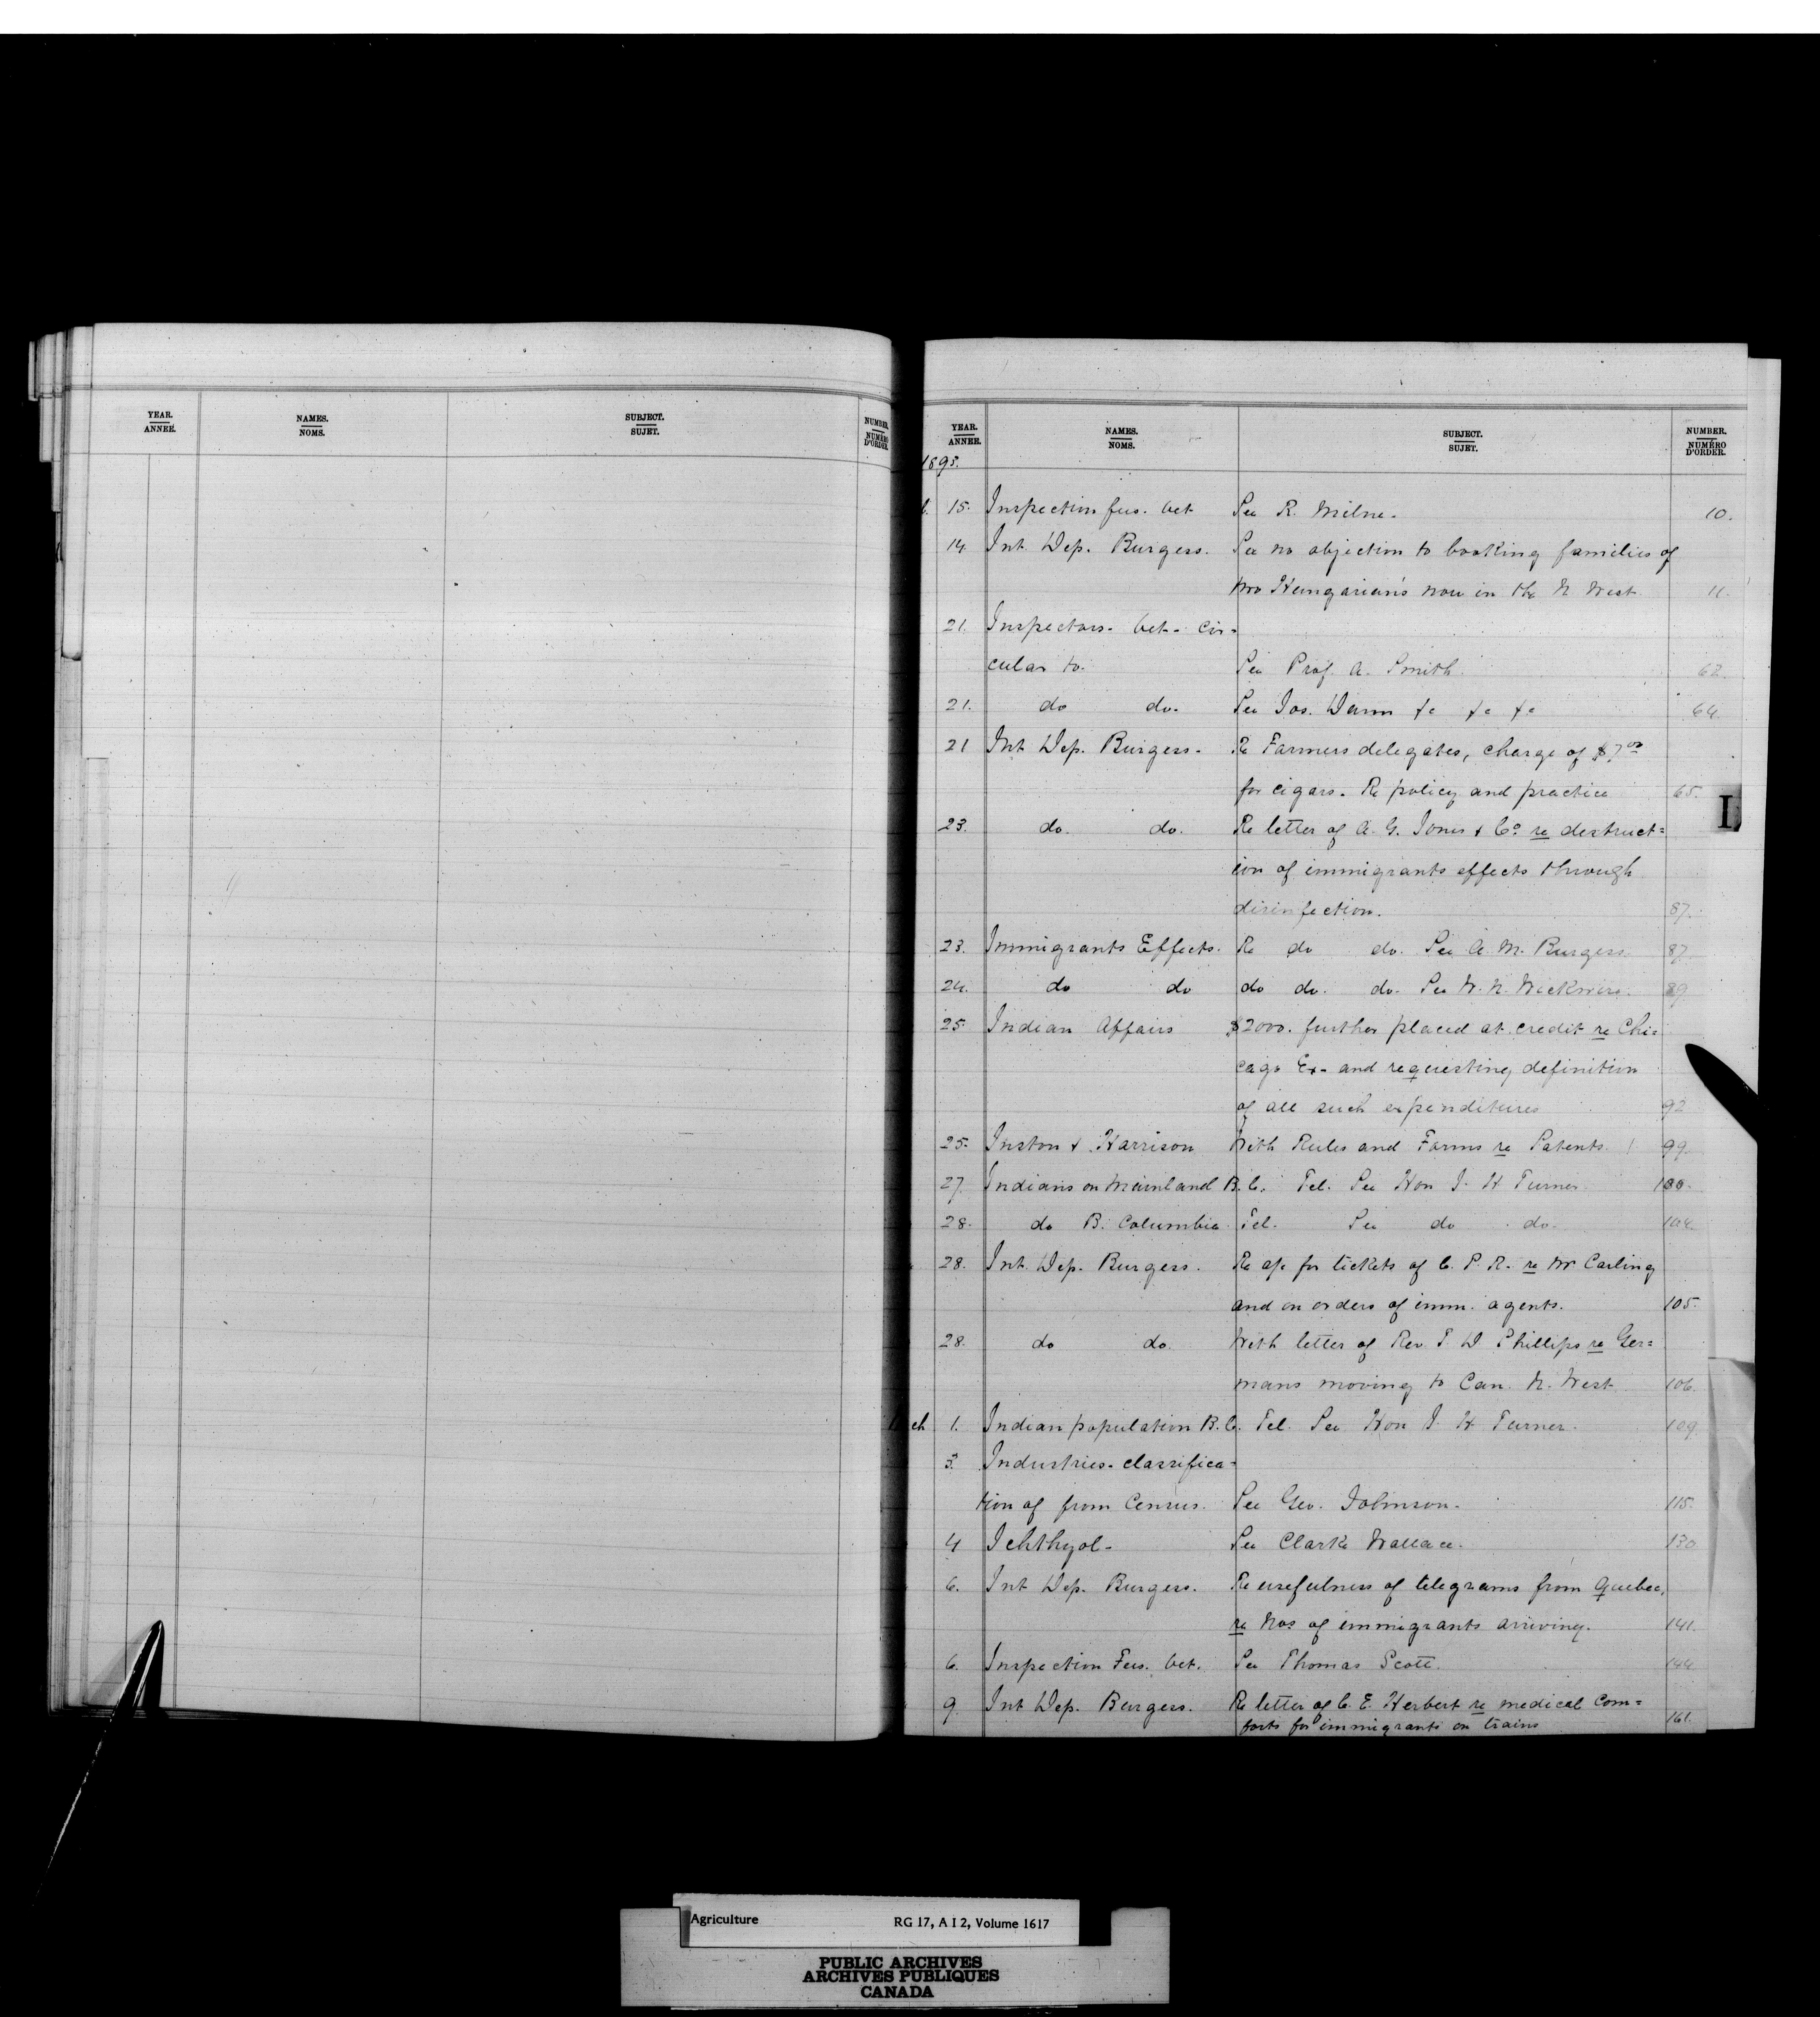 YEAR.
ANNEE.
NAMES.
NOMS.
SUBJECT.
SUJET.
NUMBER.
NUMÉRO
D'ORDER.
YEAR.
ANNEE.
NAMES.
NOMS.
SUBJECT.
SUJET.
NUMBER.
NUMÉRO
D'ORDER.
1893.
15. Inspection fees. Vet See R. Milne. 10.
14. Int. Dep. Burgess. See no objection to booking families of
two Hungarians now in the N West 11.
21. Inspectors. Vet. cir=
cular to. See Prof. A. Smith. 62.
21. do do. See Jos. Dawn &c &c &c 64.
21 Int. Dep. Burgess. Re Farmers delegates, charge of $7 00
for cigars. Re policy and practice 65.
23. do. do. Re letter of A. G. Jones & Co. re destruct=
ion of immigrants effects through
disinfection. 87.
23. Immigrants Effects. Re do do. See A. M. Burgess 87.
24. do do do do. do. See W. N. Wickwire. 89
25 Indian Affairs $2000. further placed at credit re Chi=
cago Ex- and requesting definition
of all such expenditures 92
25. Inston & Harrison With Rules and Forms re Patents. 99.
27. Indians on Mainland B. C. Tel. See Hon J. H Turner 100.
28. do B. Columbia Tel. See do do. 104.
28. Int. Dep. Burgess. Re a/c for tickets of C. P. R. re Mr Carling
and on orders of imm. agents. 105.
28. do do. With letter of Rev. T. D Phillips re Ger=
mans moving to Can. N. West 106.
ch 1. Indian population B. C. Tel. See Hon J. H Turner. 109.
3. Industries. classifica=
tion of from Census. See Geo. Johnson. 115.
4 Ichthyol- See Clarke Wallace. 130
6. Int Dep. Burgess. Re usefulness of telegrams from Quebec,
re Nos of immigrants arriving. 141.
6. Inspection Fees. Vet. See Thomas Scott. 144
9. Int Dep. Burgess. Re letter of C. E. Herbert re medical com=
forts for immigrants on trains 161.
I
Agriculture RG 17, A I 2, Volume 1617
PUBLIC ARCHIVES
ARCHIVES PUBLIQUES
CANADA